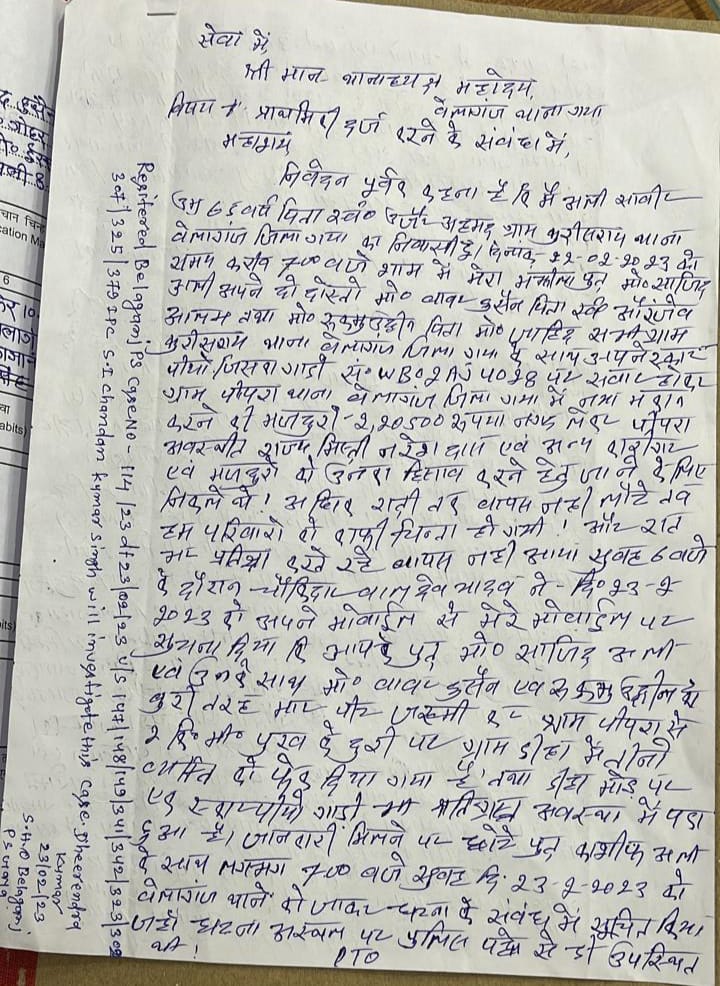 सेवा में,
श्री मान थानाध्यक्ष महोदय,
बेलागंज थाना गया
विषय :- प्राथमिकी दर्ज करने के संबंध में,
महाशय
निवेदन पूर्वक कहना है कि मैं अली साबीर
उम्र 65 वर्ष पिता स्व० अहमद ग्राम कुरीसराय थाना
बेलागंज जिला गया का निवासी हूँ। दिनांक- 22-02-2023 को
समय करीब 7:00 बजे शाम में मेरा मंझीला पुत्र मो० साजिद
अली अपने दो दोस्तो मो० बाबर हुसैन पिता स्व० औरंगजेव
आलम तथा मो० रुकमुद्दीन पिता मो० जाहिद सभी ग्राम
कुरीसराय थाना बेलागंज जिला गया के साथ अपने स्कार
पीयो जिसका गाडी सं० WB02AJ4028 पर सवार होकर
ग्राम पीपरा थाना बेलागंज जिला गया में नया मकान
करने की मजदुरी - 2,20500 रूपया नगद लेकर पीपरा
अवस्थीत राज्य मिस्त्री नरेश दास एवं अन्य कारीगर
एवं मजदुरो को उनका हिसाब करने हेतु जाने के लिए
निकले थे! रात्री तक वापस नही लौटे तब
हम परिवारो को काफी चिन्ता हो गयी! और रात
भर प्रतिक्षा करते रहे वापस नही आया सुबह 6 बजे
के दौरान चौकिदार बालदेव यादव ने दि० 23-2
2023 को अपने मोबाईल से मेरे मोबाईल पर
सुचना दिया कि आपके पुत्र मो० साजिद अली
एवं उनके साथ मो० बाबर हुसैन एवं रुकमुद्दीन को
बुरी तरह मार पीट जख्मी कर ग्राम पीपरा से
2 कि० मी० पुरब के दुरी पर ग्राम डीहा में तीनो
व्यक्ति को फेंक दिया गया है। तथा डीहा मोड पर
एक स्कारपीयो गाडी भी क्षतिग्रस्त अवस्था में पडा
हुआ है। जानकारी मिलने पर छोटे पुत्र काशीफ अली
के साथ लगभग 7:00 बजे सुबह दि. 23-2-2023 को
बेलागंज थाने को जाकर घटना के संबंध में सुचित किया
जहाँ घटना अस्थल पर पुलिस पहले से ही उपस्थित
थी!
PTO
Registered Belaganj PS Case No - 114/23 dt 23/02/23 u/s 147/148/149/341/342/323/302
307/325/379 IPC S.I chandan kumar singh will investigate this case. Dheerendra
Kumar
23/02/23
S.H.O Belaganj